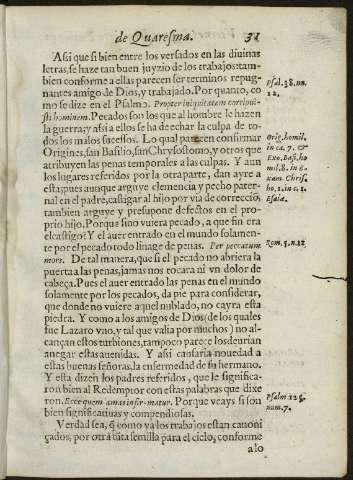 de Quaresma. 31
Asi que si bien entre los versados en las diuinas
letras, se haze tan buen juyzio de los trabajos: tam-
bien conforme a ellas parecen ser terminos repug-
nantes amigo de Dios, y trabajado. Por quanto, co
mo se dize en el Psalmo. Propter iniquitatem corripui-
sti hominem. Pecados son los que al hombre le hazen
la guerra; y asi a ellos se ha de echar la culpa de to-
dos los malos sucesos. Lo qual parecen confirmar
Origines, san Basilio, san Chrysostomo, y otros que
atribuyen las penas temporales a las culpas. Y aun
los lugares referidos por la otra parte, dan ayre a
esta; pues aunque arguye clemencia y pecho pater-
nal en el padre, castigar al hijo por via de correcciō,
tambien arguye y presupone defectos en el pro-
prio hijo. Porque sino vuiera pecado, a que fin era
el castigo? Y el auer entrado en el mundo solamen-
te por el pecado todo linage de penas. Per peccatum
mors. De tal manera, que si el pecado no abriera la
puerta a las penas, jamas nos tocara ni vn dolor de
cabeça. Pues el auer entrado las penas en el mundo
solamente por los pecados, da pie para considerar,
que donde no vuiere aquel nublado, no cayra esta
piedra. Y como a los amigos de Dios (de los quales
fue Lazaro vno, y tal que valia por muchos) no al-
cançan estos turbiones, tampoco parece los deurian
anegar estas auenidas. Y asi causaria nouedad a
estas buenas señoras, la enfermedad de su hermano.
Y esta dizen los padres referidos, que le significa-
ron bien al Redemptor con estas palabras que dixe
ron. Ecce quem amas infirmatur. Porque veays si son
bien significatiuas y compendiosas.
Verdad sea, q̃ como ya los trabajos estan canoni
çados, por otra tãta semilla para el cielo, conforme
alo
Psal. 38. nu.
12.
Orig. homil.
in ca. 7. &
Exo. Basi. ho
mil. 8. in E
uam. Chrys.
ho. 1. in c. 1.
Esaiæ.
Rom. 5. n. 12
Psalm 125.
num. 7.